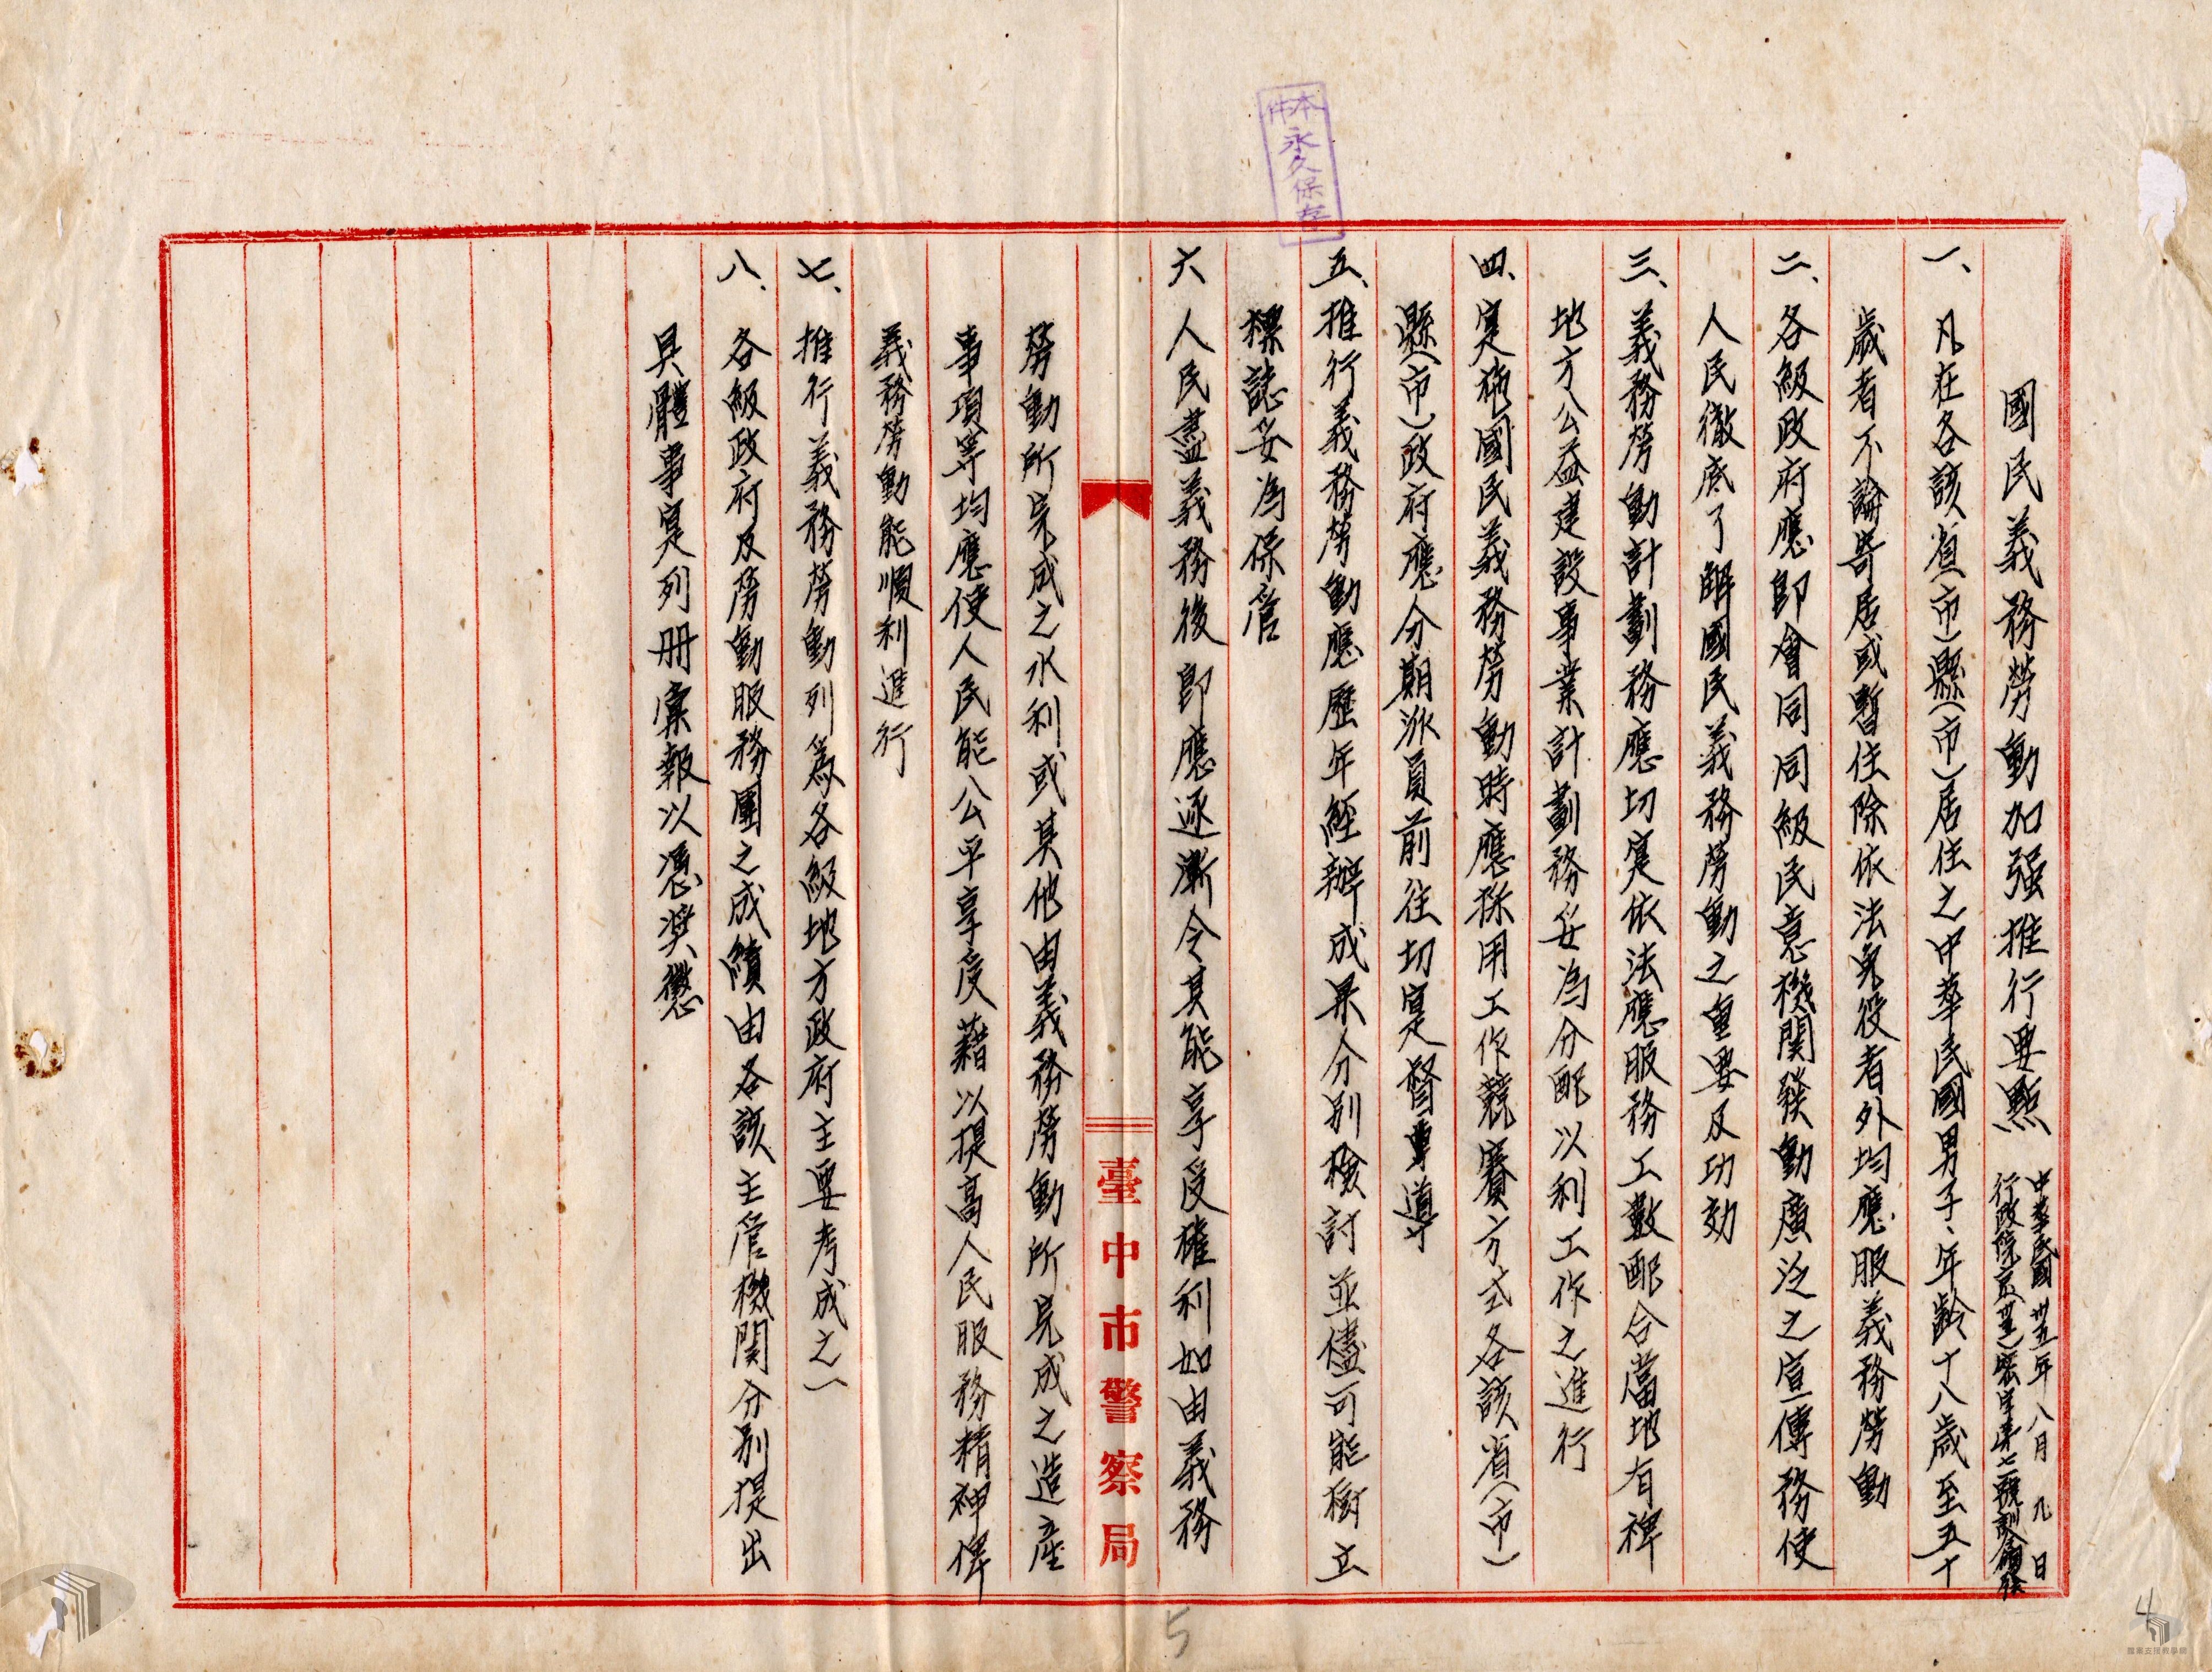 本件永久保存
國民義務勞動加强推行要點
中華民國卅五年八月九日
行政院京(卅五)密字第七一號訓令頒發
一、凡在各該省(市)縣(市)居住之中華民國男子、年齡十八歲至五十
歲者不論寄居或暫住除依法免役者外均應服義務勞動
二、各級政府應即會同同級民意機関發動廣泛之宣傳務使
人民徹底了解國民義務勞動之重要及功効
三、義務勞動計劃務應切寔依法應服務工數配合當地有裨
地方公益建設事業計劃務妥為分配以利工作之進行
四、寔施國民義務勞動時應採用工作競賽方式各該省(市)
縣(市)政府應分期派員前往切寔督導
五、推行義務勞動應歷年經辦成果分別檢討並儘可能樹立
標誌妥為保管
六 人民盡義務後即應逐漸令其能享受權利如由義務
勞動所完成之水利或其他由義務勞動所完成之造產
事項等均應使人民能公平享受藉以提高人民服務精神俾
義務勞動能順利進行
七、推行義務勞動列為各級地方政府主要考成之一
八、各級政府及勞動服務團之成績由各該主管機関分別提出
具體事寔列册彙報以憑奬懲
臺中市警察局
5
4
檔案支援教學網